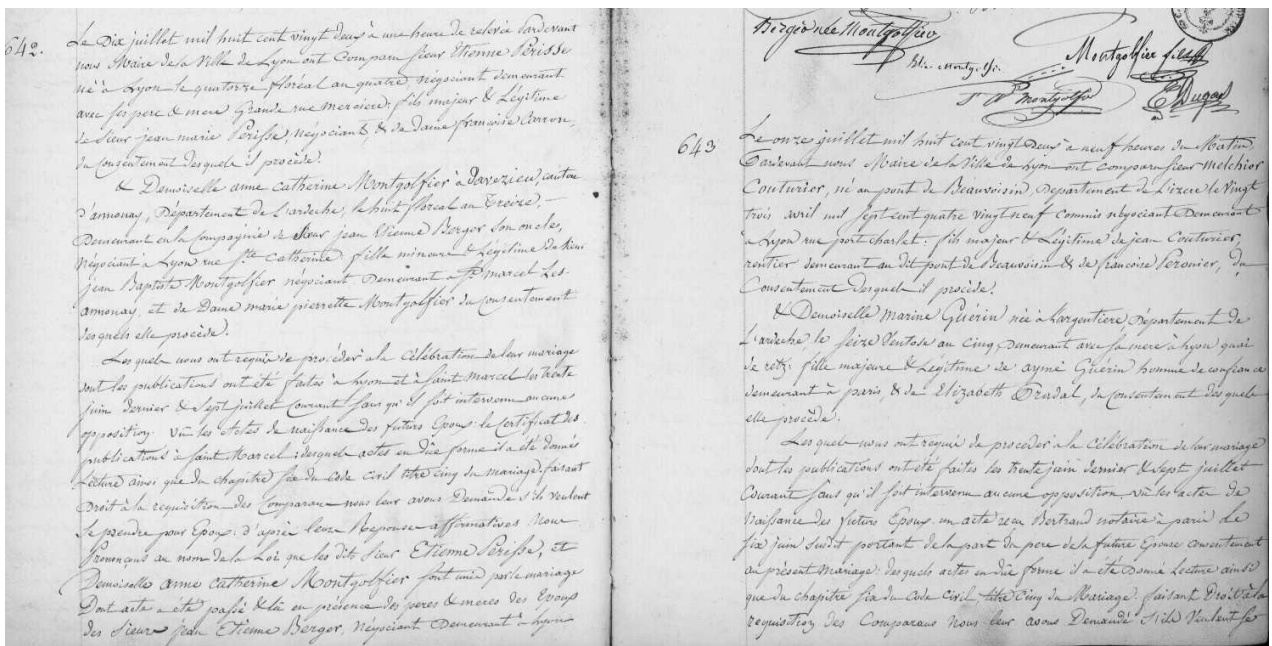 642.
Le Dix juillet mil huit cent vingt deux à une heure de relevée Pardevant
nous Maire de la Ville de Lyon ont Comparu Sieur Etienne Périsse
né à Lyon le quatorze floréal an quatre négociant demeurant
avec ses pere & mere Grande rue merciere; fils majeur & Légitime
de Sieur jean marie Périsse, négociant, & de Dame françoise Carron,
du Consentement desquels il procède.
& Demoiselle anne Catherine Montgolfier à Davezieu, canton
d'annonay, Département de L'ardeche, le huit floreal an Treize,
Demeurant en la Compagnie de Sieur jean Etienne Berger Son oncle,
Négociant à Lyon rue Ste Catherine; fille mineure & Légitime de
jean Baptiste Montgolfier négociant Demeurant à St marcel Les
annonay, et de Dame marie pierrette Montgolfier du Consentement
desquels elle procède.
Lesquels nous ont requis de procéder à la Célébration de leur mariage
dont les publications ont été faites à Lyon et à Saint Marcel les trente
juin dernier & Sept juillet Courant Sans qu'il soit intervenu aucune
opposition. Vu les Actes de Naissance des futurs Epoux; le Certificat des
publications à Saint Marcel; desquels actes en Due forme il a été donné
Lecture ainsi que du Chapitre Six du Code Civil titre cinq du mariage faisant
Droit à la requisition des Comparans nous leur avons Demandé s'ils veulent
Se prendre pour Epoux; d'après leurs Reponses affirmatives Nous
Prononçons au nom de la Loi que les dits Sieur Etienne Périsse, et
Demoiselle anne catherine Montgolfier Sont unis par le mariage
Dont acte a été passé & Lu en présence des peres & meres des Epoux
des Sieurs jean Etienne Berger, Négociant Demeurant à Lyon
née Montgolfier
Montgolfier fils
Montgolfier
Dugas
643
Le onze juillet mil huit cent vingt Deux à neuf heures du Matin
Pardevant nous Maire de la Ville de Lyon ont comparu Sieur melchior
Couturier, né au pont de Beauvoisin, Département de L'izere le vingt
trois avril mil sept cent quatre vingt neuf commis négociant Demeurant
à Lyon rue port charlet; fils majeur & Légitime de jean Couturier,
rentier demeurant au dit pont de Beauvoisin & de francoise Peronier, du
Consentement desquels il procède.
& Demoiselle Marine Guérin née à Largentiere Département de
L'ardeche, le Seize Ventose an Cinq Demeurant avec sa mere à Lyon quai
de retz; fille majeure & Légitime de aymé Guérin homme de confiance
demeurant à paris & de Elizabeth, du Consentement desquels
elle procède.
Lesquels nous ont requis de proceder à la Célébration de leur mariage
dont les publications ont été faites les trente juin dernier & Sept juillet
Courant Sans qu'il soit intervenu aucune opposition. vu les actes de
Naissance des futurs Epoux un acte recu Bertrand notaire à paris le
Six juin Susdit portant de la part du pere de la future Epouse consentement
au présent Mariage; desquels actes en Due forme il a été Donné Lecture ainsi
que du chapitre Six du Code Civil, titre Cinq du Mariage. faisant Droit à la
requisition des Comparans Nous leur avons Demandé S'ils Veulent Se